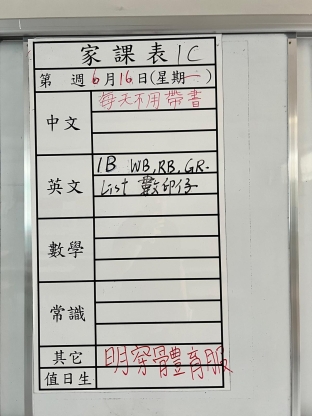 家課表 1C
第 週 6月16日(星期一)
每天不用帶書
中文
1B WB, RB, GR.
英文
List 數印仔
數學
常識
其它 明穿體育服
值日生